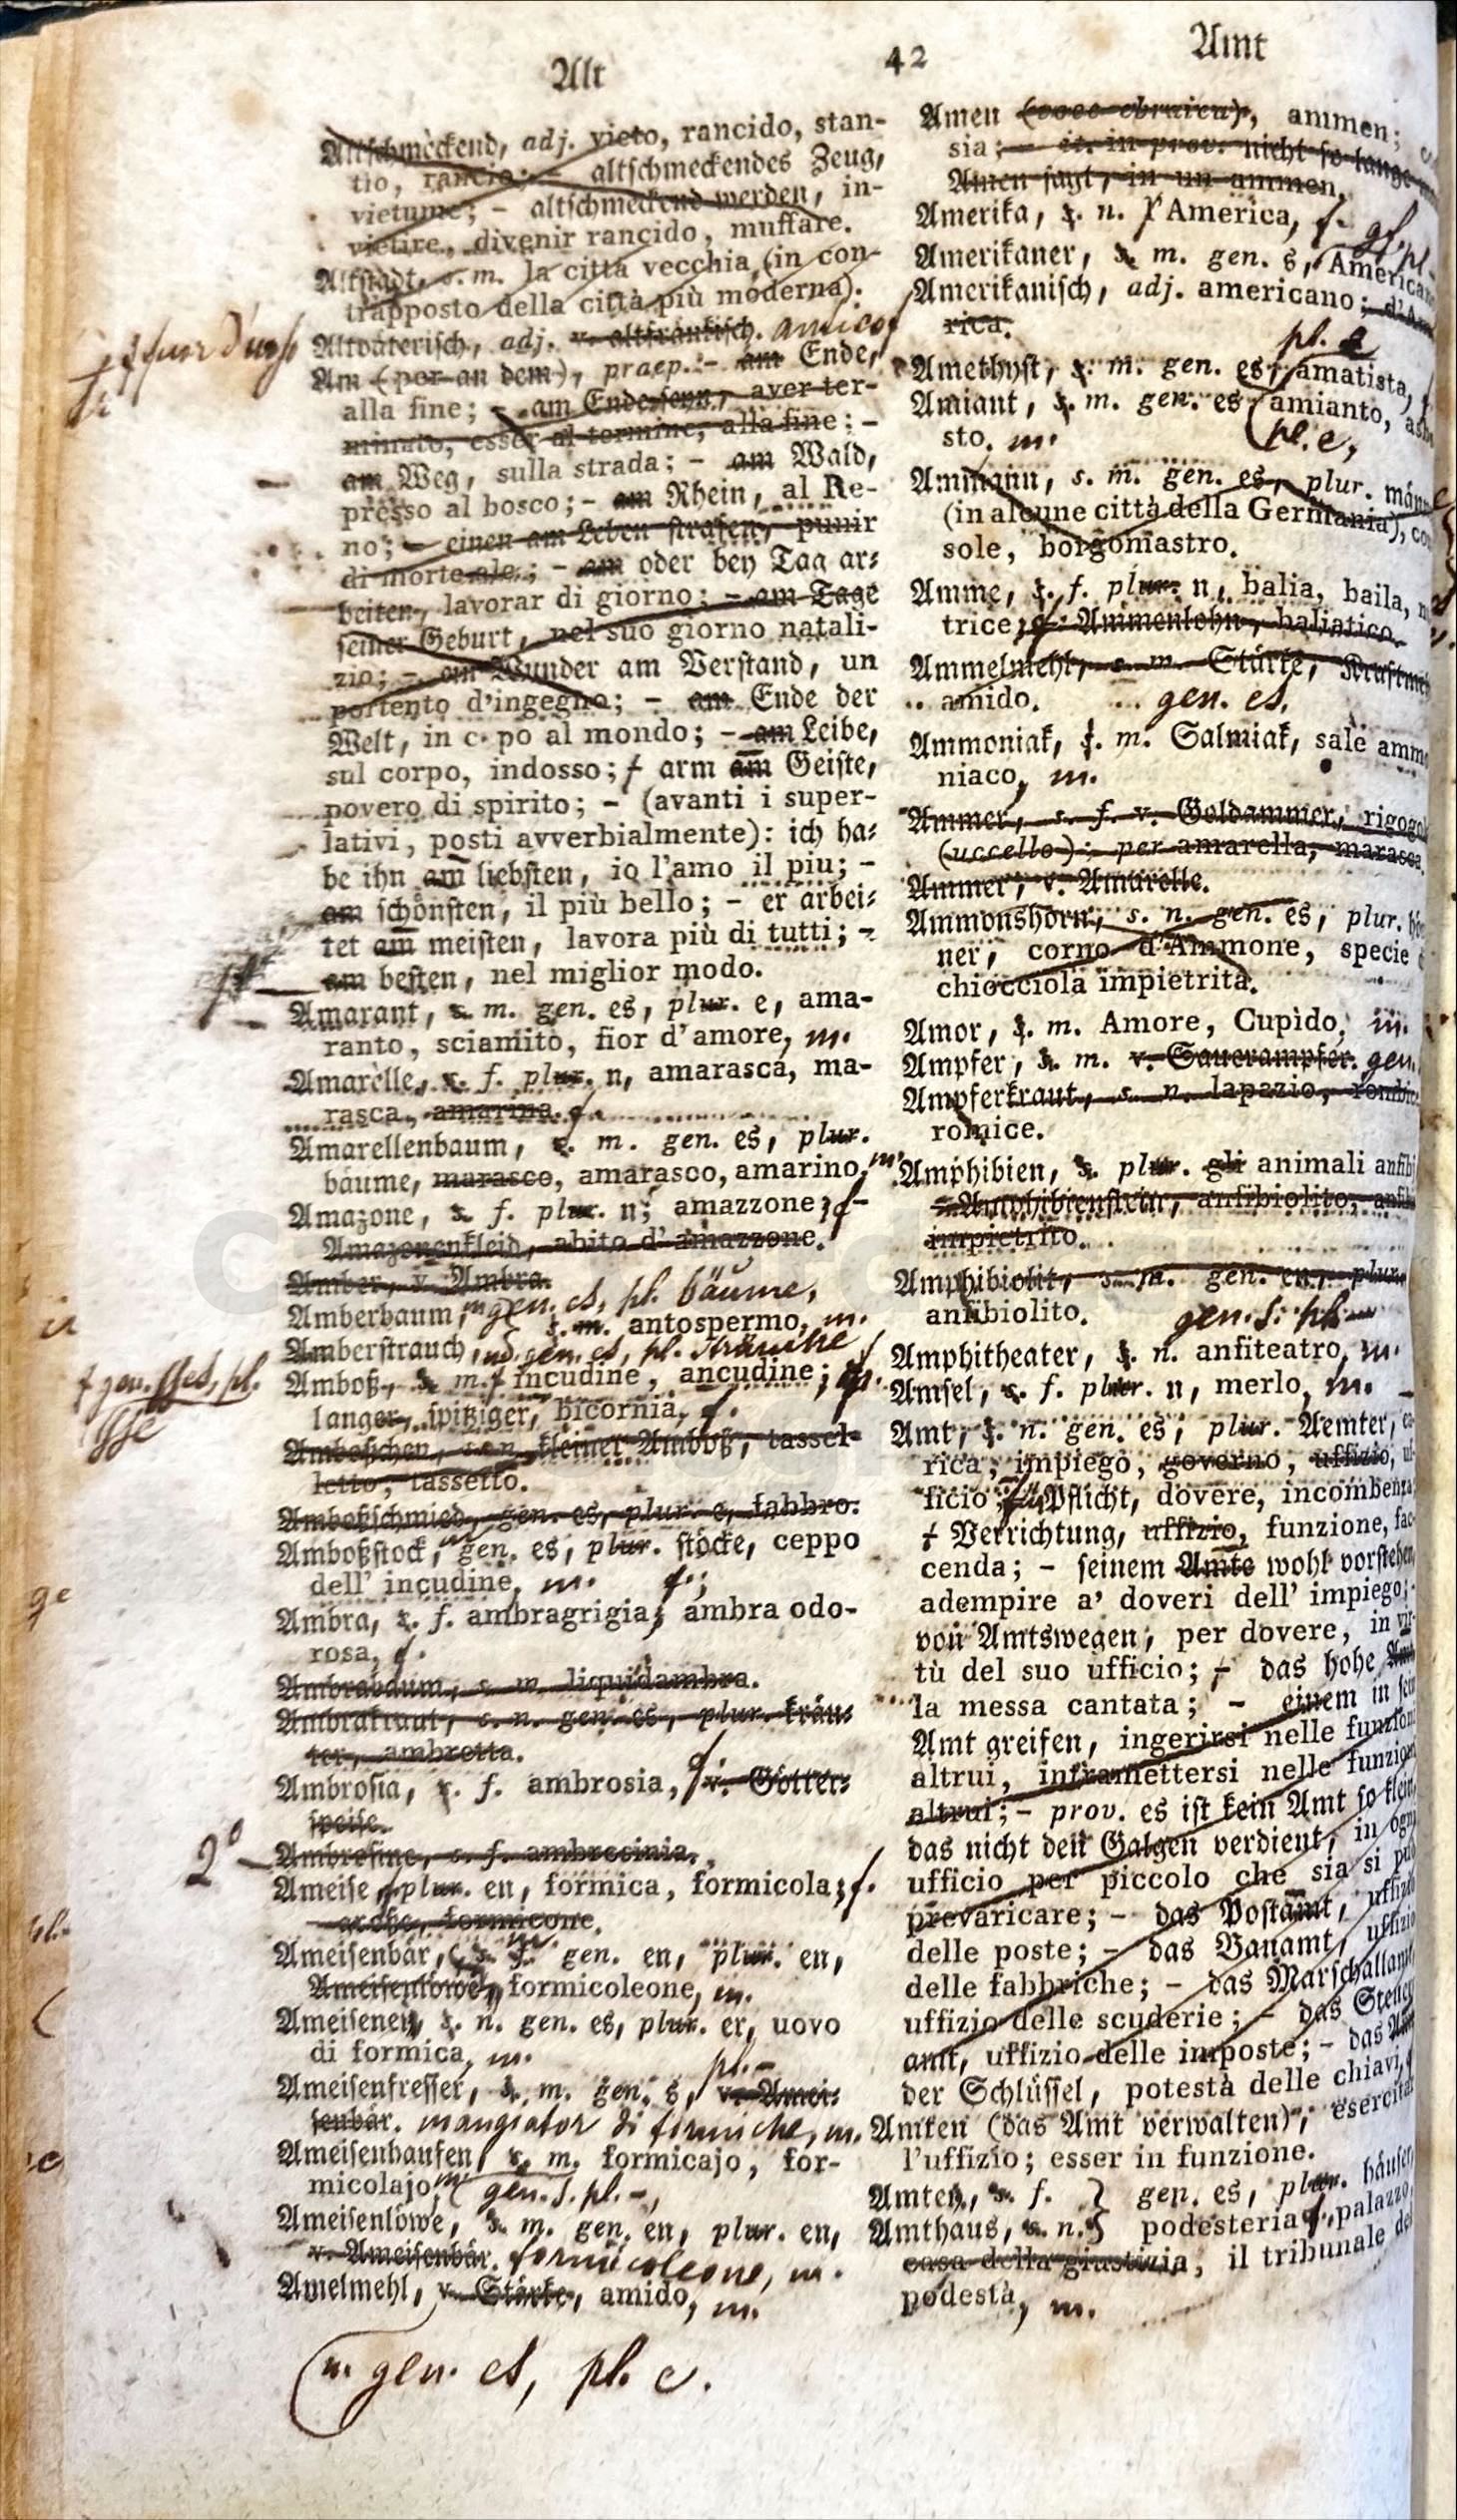 Alt
42
Amt
Altschmeckend, adj. vieto, rancido, stan-
tio, rancio; - altschmeckendes Zeug,
vietume; - altschmeckend werden, in-
vietire, divenir rancido, muffare.
Altstadt, s. m. la città vecchia (in con-
trapposto della città più moderna).
Altväterisch, adj. v. altfränkisch. antico,
Am (per an dem), praep. - am Ende,
alla fine; - am Ende seyn, aver ter-
minato, esser al termine, alla fine; -
am Weg, sulla strada; - am Wald,
presso al bosco; - am Rhein, al Re-
no; - einen am Leben strafen, punir
di morte alc.; - am oder bey Tag ar-
beiten, lavorar di giorno; - am Tage
seiner Geburt, nel suo giorno natali-
zio; - am Wunder am Verstand, un
portento d'ingegno; - am Ende der
Welt, in c po al mondo; - am Leibe,
sul corpo, indosso; arm am Geiste,
povero di spirito; - (avanti i super-
lativi, posti avverbialmente): ich ha-
be ihn am liebsten, io l'amo il piu; -
am schönsten, il più bello; - er arbei-
tet am meisten, lavora più di tutti; -
am besten, nel miglior modo.
Amarant, s. m. gen. es, plur. e, ama-
ranto, sciamito, fior d'amore, m.
Amarelle, s. f. plur. n, amarasca, ma-
rasca, amarina. f.
Amarellenbaum, s. m. gen. es, plur.
bäume, marasco, amarasco, amarino, m.
Amazone, s. f. plur. n; amazzone; f -
Amazonenkleid, abito d'amazzone.
Amber, v. Ambra.
Amberbaum, m gen. es, pl. bäume,
s. m. antospermo, m.
Amberstrauch, m. gen. es, pl. sträuche
Amboß, s. m. incudine, ancudine; f.
langer, spitziger, bicornia, f.
gen. sses, pl.
sse
Amboßchen, s. n. kleiner Amboß, tassel-
letto, tassetto.
Amboßschmied, gen. es, plur. e, fabbro.
Amboßstock, m gen. es, plur. stöcke, ceppo
dell' incudine, m. f.;
Ambra, s. f. ambragrigia; ambra odo-
rosa, f.
Ambrabaum, s. m. liquidambra.
Ambrakraut, s. n. gen. es, plur. kräu-
ter, ambretta.
Ambrosia, s. f. ambrosia, f. v. Götter-
speise.
2°
Ambrosine, s. f. ambrosinia.
Ameise, f plur. en, formica, formicola; f.
große, formicone.
Ameisenbär, s. f. m gen. en, plur. en,
Ameisenlöwe, formicoleone, m.
Ameiseney, s. n. gen. es, plur. er, uovo
di formica, m.
Ameisenfresser, s. m. gen. s, pl. - v. Amei-
senbär. mangiator di formiche, m.
Ameisenhaufen, s. m. formicajo, for-
micolajo, m ( gen. s. pl. -,
Ameisenlöwe, s. m. gen. en, plur. en,
v. Ameisenbär. formicoleone, m.
Amelmehl, v. Stärke, amido, m.
n. gen. es, pl. e.
Amen (voce ebraica), ammen;
sia; - it. in prov. nicht so lange
Amen sagt, in un ammen.
Amerika, s. n. l'America, f.
Amerikaner, s. m. gen. s, American
Amerikanisch, adj. americano; d'Ame
rica.
pl. e
Amethyst, s. m. gen. es, amatista, f
Amiant, s. m. gen. es amianto, asb
sto. m. (pl. e,
Ammann, s. m. gen. es, plur. männ
(in alcune città della Germania), con
sole, borgomastro.
Amme, s. f. plur. n, balia, baila, n
trice; f - Ammenlohn, baliatico.
Ammelmehl, s. m. Stärke, Kraftmeh
amido. gen. es,
Ammoniak, s. m. Salmiak, sale ammo
niaco, m.
Ammer, s. f. v. Goldammer, rigogol
(uccello); per amarella, marasca.
Ammer, v. Amarelle.
Ammonshorn, s. n. gen. es, plur. hör
ner, corno d'Ammone, specie d
chiocciola impietrita.
Amor, s. m. Amore, Cupido, m.
Ampfer, s. m. v. Sauerampfer. gen.
Ampferkraut, s. n. lapazio, rombice
romice.
Amphibien, s. plur. gli animali anfibi
- Amphibienstein, anfibiolito, anfibi
impietrito.
Amphibiolit, s. m. gen. en, plur.
anfibiolito. gen. s. pl. -
Amphitheater, s. n. anfiteatro, m.
Amsel, s. f. plur. n, merlo, m.
Amt, s. n. gen. es, plur. Aemter, ca-
rica, impiego, governo, uffizio, uf-
ficio; Pflicht, dovere, incombenza;
Verrichtung, uffizio, funzione, fac-
cenda; - seinem Amte wohl vorstehen,
adempire a' doveri dell' impiego; -
von Amtswegen, per dovere, in vir-
tù del suo ufficio; - das hohe Amt
la messa cantata; - einem in sein
Amt greifen, ingerirsi nelle funzioni
altrui, inframettersi nelle funzioni
altrui; - prov. es ist kein Amt so klein,
das nicht den Galgen verdient, in ogni
ufficio per piccolo che sia si può
prevaricare; - das Postamt, uffizio
delle poste; - das Bauamt, uffizio
delle fabbriche; - das Marschallamt,
uffizio delle scuderie; - das Steuer-
amt, uffizio delle imposte; - das Amt
der Schlüssel, potestà delle chiavi,
Amten (das Amt verwalten), esercitar
l'uffizio; esser in funzione.
Amtey, s. f. } gen. es, plur. häuser,
Amthaus, s. n. } podesteria f., palazzo,
casa della giustizia, il tribunale del
podestà, m.